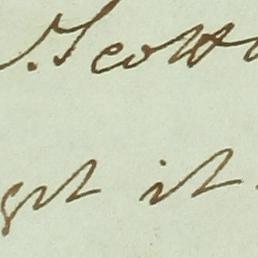 Scott
get it.